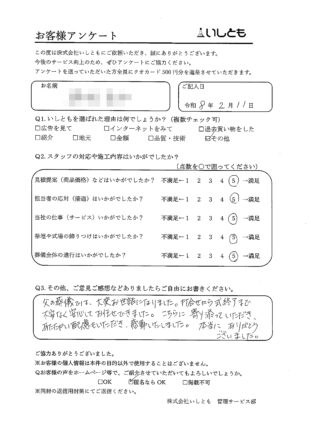 お客様アンケート
いしとも
この度は株式会社いしともにご依頼いただき、誠にありがとうございます。
今後のサービス向上のため、ぜひアンケートにご協力ください。
アンケートを送っていただいた方全員にクオカード500円分を進呈させていただきます。
お名前
ご記入日
令和 8年 2月 11日
Q1.いしともを選ばれた理由は何でしょうか？（複数チェック可）
□広告を見て □インターネットをみて □過去買い物をした
□紹介 □地元 □金額 □品質・技術 ☑その他
Q2.スタッフの対応や施工内容はいかがでしたか？
（点数を○で囲ってください）
見積提案（商品価格）などはいかがでしたか？ 不満足←1 2 3 4 5 →満足
担当者の応対（接遇）はいかがでしたか？ 不満足←1 2 3 4 5 →満足
当社の仕事（サービス）いかがですか？ 不満足←1 2 3 4 5 →満足
祭壇や式場の飾りつけはいかがですか？ 不満足←1 2 3 4 5 →満足
葬儀全体の進行はいかがですか？ 不満足←1 2 3 4 5 →満足
Q3.その他、ご意見ご感想などありましたらご自由にお書きください。
父の葬儀では、大変お世話になりました。打合せから式終了まで
不安なく安心してお任せできました。こちらに寄り添っていただき、
あたたかい配慮もいただき、感動いたしました。本当に ありがとう
ございました。
ご協力ありがとうございました。
※お客様の個人情報は本件の目的以外で使用することはございません。
Q.お客様の声をホームページ等で、ご紹介させていただいてもよろしいでしょうか。
□OK ☑匿名ならOK □掲載不可
※同封の返信用封筒にてご返送ください。
株式会社いしとも 管理サービス部